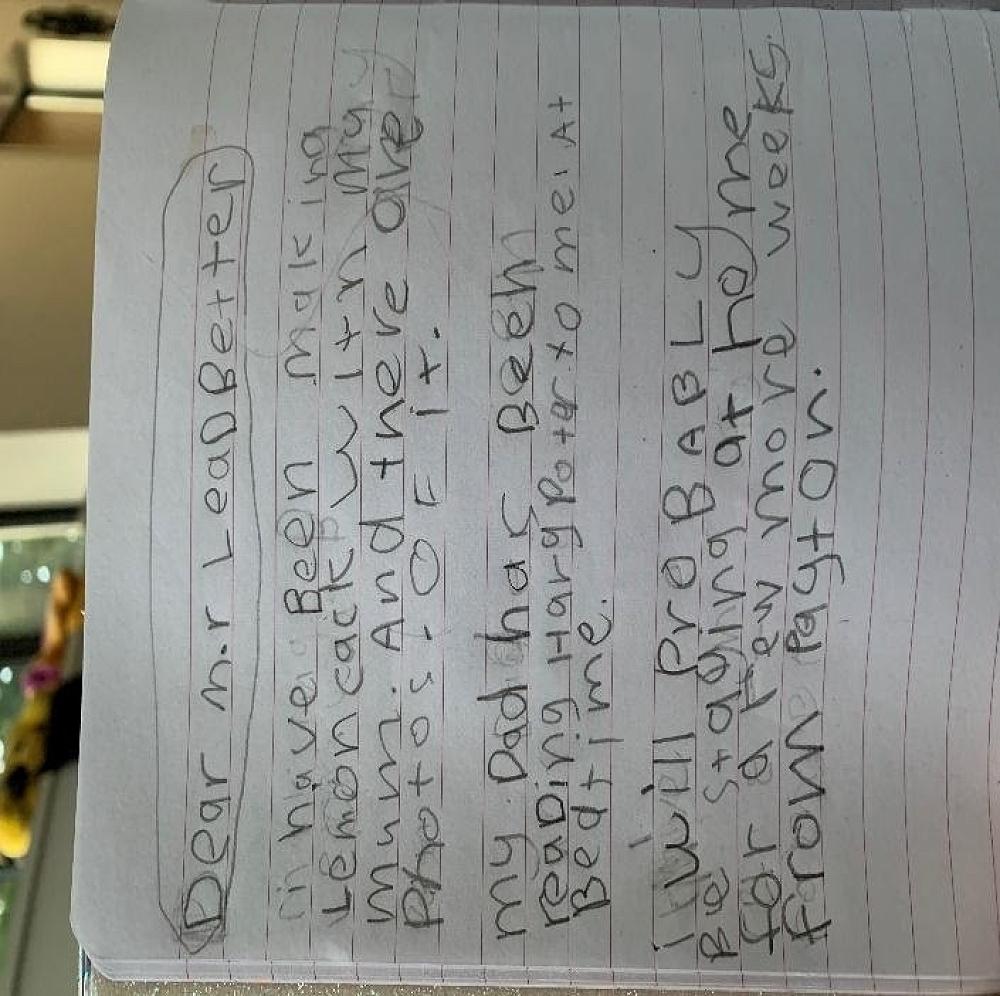 Dear m.r LeaDBetter
i have Been making
Lemon cack with my
mum. And there are
Photos. OF it.
my Dad has Been
reaDing Hary Poter to me. At
Bedtime.
i will ProBABLY
Be staying at home
for a few more weeks.
from Payton.